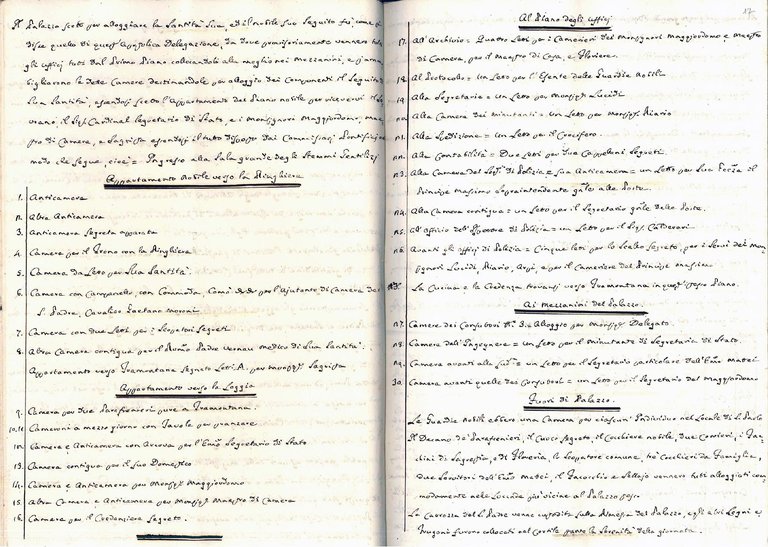 Il Palazzo scelto per alloggiare la Santità Sua, ed il nobile suo Seguito fu, come si
disse quello di quest' Apostolica Delegazione, da dove provvisoriamente vennero tolti
gli uffici tutti dal Primo Piano collocandoli alla meglio nei Mezzanini, e si
bigliarono le dette Camere destinandole per alloggio dei Componenti il Seguito
Sua Santità, essendosi scelto l'appartamento del Piano nobile per ricevervi il
vrano, il Sig. Cardinal Segretario di Stato, e i monsignori Maggiordomo, Mae
stro di Camera, e Sagrista essendosi il tutto disposto dai Commissari Pontifici nel
modo che segue, cioè = Ingresso alla Sala grande degli Stemmi Gentilizi
Appartamento nobile verso la Ringhiera
1. Anticamera
2. Altra Anticamera
3. Anticamera Segreta apparata
4. Camera per il Trono con la Ringhiera
5. Camera da Letto per Sua Santità
6. Camera con Campanello, con Commoda, Comò per l'Ajutante di Camera del
S. Padre, Cavaliere Gaetano Moroni
7. Camera con due Letti per i Scopatori Segreti
8. Altra Camera contigua per il Rmo Padre Vernau medico di Sua Santità
Appartamento verso Tramontana Segnato Lett. A. per Monsig. Sagrista
Appartamento verso la Loggia
9. Camera per due Parafrenieri pure a Tramontana.
10, 11 Cameroni a mezzo giorno con Tavole per pranzare
12. Camera e Anticamera con Arcova per l'Emo Segretario di Stato
13. Camera contigua per il suo Domestico
14. Camera e Anticamera per Monsig. Maggiordomo
15. Altra Camera e Anticamera per Monsig. Maestro di Camera
16. Camera per il Credenziere Segreto.
17
Al Piano degli Uffici
17. All' Archivio = Quattro Letti per i Camerieri dei Monsignori Maggiordomo e Maestro
di Camera, per il Maestro di Casa, e Floriere.
18. Al Protocollo = un Letto per l'Esente delle Guardie Nobili
19. Alla Segretaria = un Letto per Monsig. Lucidi
20. Alla Camera dei minutanti = un Letto per Monsig. Riario
21. Alla Spedizione = un Letto per il Crocifero
22. Alla Contabilità = Due Letti per due Cappellani Segreti.
23. Alla Camera del di Polizia = Sua Anticamera = un Letto per Sua Ecc.za il
Principe Massimo Sopraintendente gnle alle Poste.
24. Alla Camera contigua = un Letto per il Segretario gnle delle Poste.
25. All' Officio dell' Ispettore di Polizia = un Letto per il Sig. Calderari
26. Avanti gli uffici di Polizia = Cinque letti per lo Scalco Segreto, per i Servi dei Mon
signori Lucidi, Riario, Arpi, e per il Cameriere del Principe Massimo
La Cucina e la Credenza trovansi verso Tramontana in quest' Piano.
Ai Mezzanini del Palazzo.
27. Camere dei Consultori N. 3. Alloggio per Monsig. Delegato.
28. Camera dell' Ingegnere = un Letto per il minutante di Segretaria di Stato.
29. Camera avanti alla Sud.a = un Letto per il Segretario particolare dell' Emo Mattei
30. Camera avanti quelle dei Consultori = un Letto per il Segretario del Maggiordomo
Fuori di Palazzo.
Le Guardie nobili ebbero una Camera per ciascun Individuo nel Locale di S. Paolo
Il Decano de' Parafrenieri, il Cuoco Segreto, il Cocchiere nobile, due Corrieri, i Fac
chini di Sagrestia, e di Floreria, lo Scopatore comune, tre Cocchieri da Famiglia,
due Servitori dell' Emo Mattei, il Facocchio e Sellajo vennero tutti alloggiati com
modamente nelle Locande più vicine al Palazzo
La Carrozza del S. Padre venne custodita sotto del Palazzo, e gli altri Legni e
furgoni furono collocati nel Cortile la Serenità della giornata.